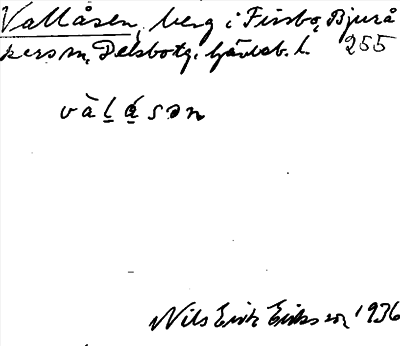 Vallåsen, berg i Firsbo, Bjurå
kers sn, Delsbotg. Gävleb. l. 255
vàl̠á̠sən
Nils Erik Eriksson 1936